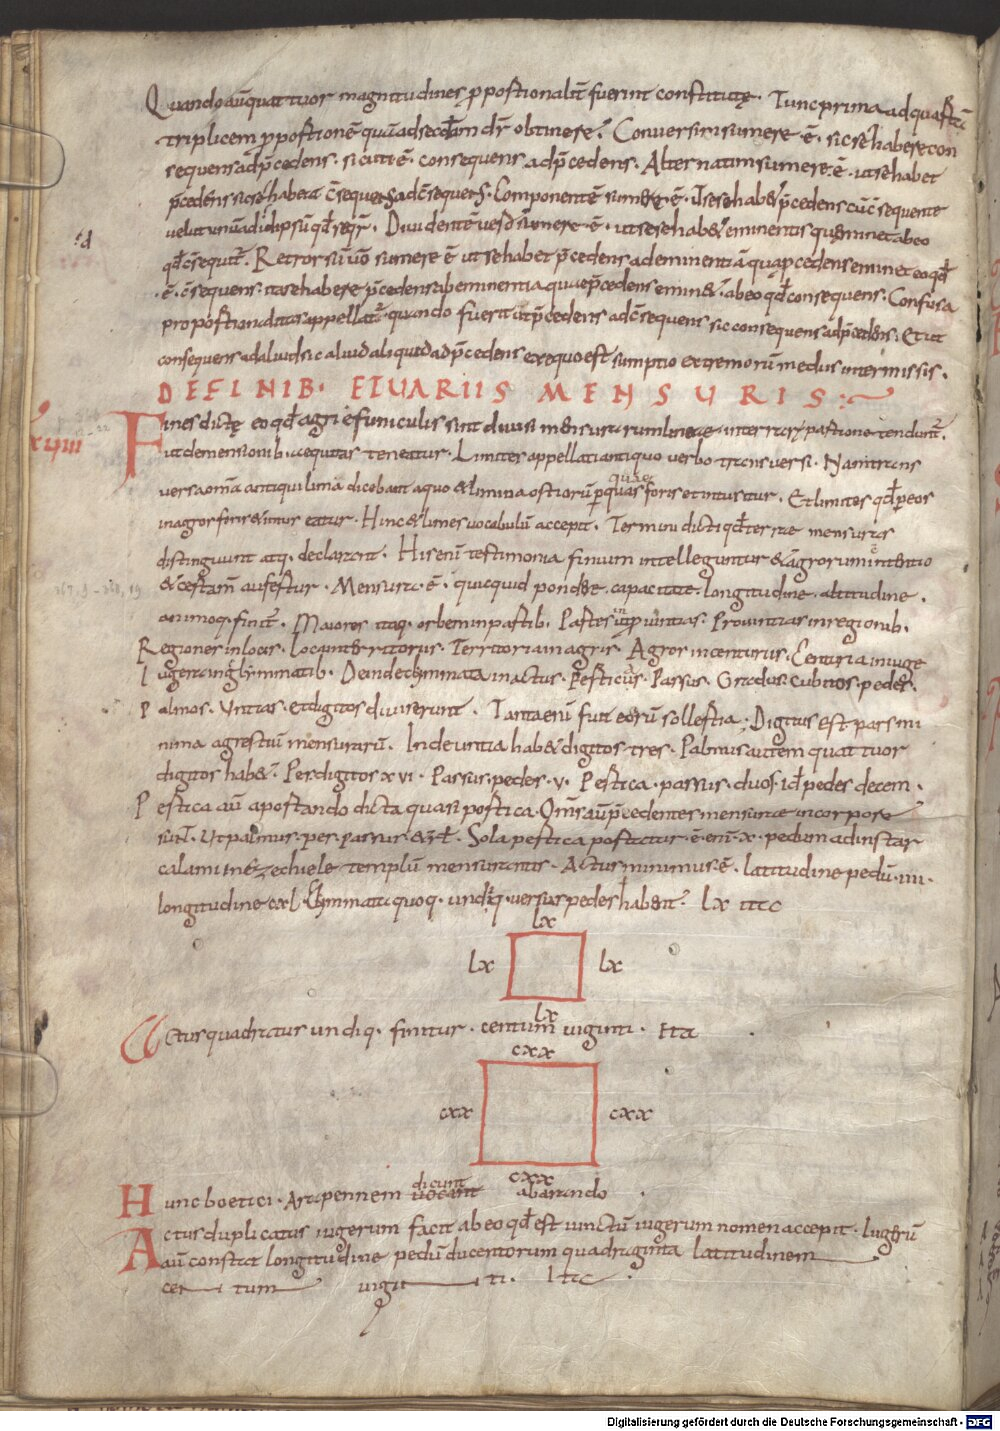 Quando aūquattuor magnitudines ꝓportionaliter fuerint constitutę. Tunc prima ad quartā
triplicem ꝓportionē quā ad secūdam dr̄ obtinere. Conuersim sumere. ē. sic se habere con
sequens ad p̄cedens. sicuti ē. consequens ad p̄cedens. Alternatim sumere. ē. ut se habet
p̄cedens sic se habere c̄sequens ad c̄sequens. Componentē sumere ē. ut sese hab& p̄cedens cū c̄sequente
uelut unū ad id ipsū qd̄ seqr̄. Diuidentē uero sumere ē. ut sese hab& eminentis qua eminet ab eo
qd̄ c̄sequit̄. Retrorsū ūo sumere ē ut se habet p̄cedens ad eminentiā qua p̄cedens eminet eo qd̄
.ē. c̄sequens. ita se habere p̄cedens ab eminentia qua p̄cedens emin&. ab eo qd̄ consequens. Confusa
proportionalitas appellat̄. quando fuerit ut p̄cedens ad c̄sequens sic consequens ad p̄cedens. Et ut
consequens ad aliud sic aliud aliquid ad p̄cedens ex equo est sumptio extremorū mediis intermissis.
DEFINIB. ET UARIIS MENSURIS
:d
xuiii
Fines dictę eo qd̄ agri e funiculis sint diuisi mensurarum lineae interrarꝫ partione tendunt̄.
ut demensionib. aequitas teneatur. Limites appellati antiquo uerbo transuersi. Nam trans
uersa om̄a antiqui lima dicebant a quo & limina ostiorū ꝑ quas foris et intus itur. Et limites qd̄ ꝑ eos
quae
in agros foris & intus eatur. Hinc & limes uocabulū accepit. Termini dicti qd̄ terrae mensuras
distinguunt atq. declarant. His enī testimonia finium intelleguntur & agrorum intentio
& certam̄ aufertur. Mensura. ē. quicquid pondere. capacitate. longitudine. altitudine.
animoq. finit̄. Maiores itaq. orbem in partib. Partes in ꝓuintias. Prouintias in regionib.
Regiones in locis. Loca in territoriis. Territoria in agris. Agros in centuriis. Centuria in iuge
Iugera in climmatib. Deinde clymmata in actus. Perticas. Passus. Gradus. cubitos. pedes.
Palmos. Untias. et digitos diuiserunt. Tanta enī fuit eorū sollertia. Digitus est pars mi
nima agrestiū mensurarū. Inde untia hab& digitos tres. Palmus autem quattuor
digitos hab&. Pes digitos xvi. Passus. pedes. v. Pertica. passus. duos. id̄ pedes decem.
Pertica aū a portando dicta quasi portica. Om̄s aū p̄cedentes mensurae in corpore
sunt. Ut palmus. pes. passus. & r̄l. Sola pertica portatur. ē. enī. x. pedum ad instar
calami in ezechiele templū mensurantis. Actus minimus. ē. latitudine pedū. iiii.
longitudine cxl. Clymmata quoq. undiq. uersus pedes habent. lx ita
lx
lx lx
lx
Actus quadratus undiq. finitur. centum uiginti. Ita
cxx
cxx cxx
cxx
dicunt
Hunc boetici. Arapennem uocant ab arando
Actus duplicatus iugerum facit ab eo qd̄ est iunctū iugerum nomen accepit. Iugerū
aū constat longitudine pedū ducentorum quadraginta latitudinem
cen tum uigin ti. Ita
Digitalisierung gefördert durch die Deutsche Forschungsgemeinschaft - DFG